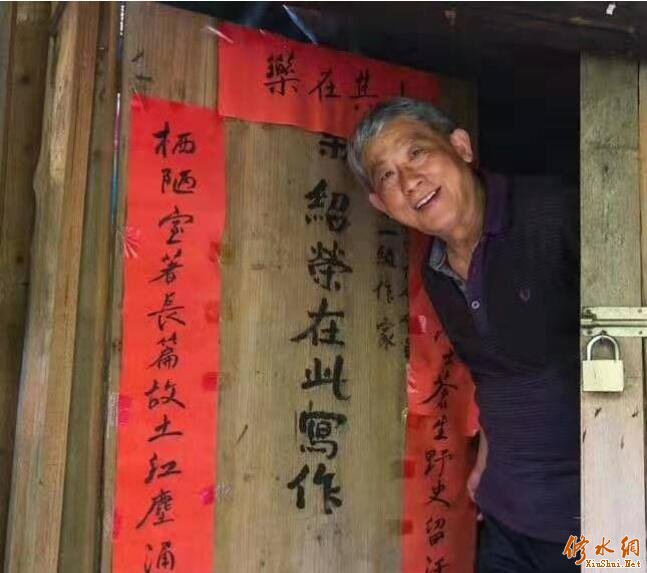 樂在其
栖陋室著長篇故土红塵涌
紹榮在此寫作
一級作家
蒼生野史留
修水網
XiuShui.Net